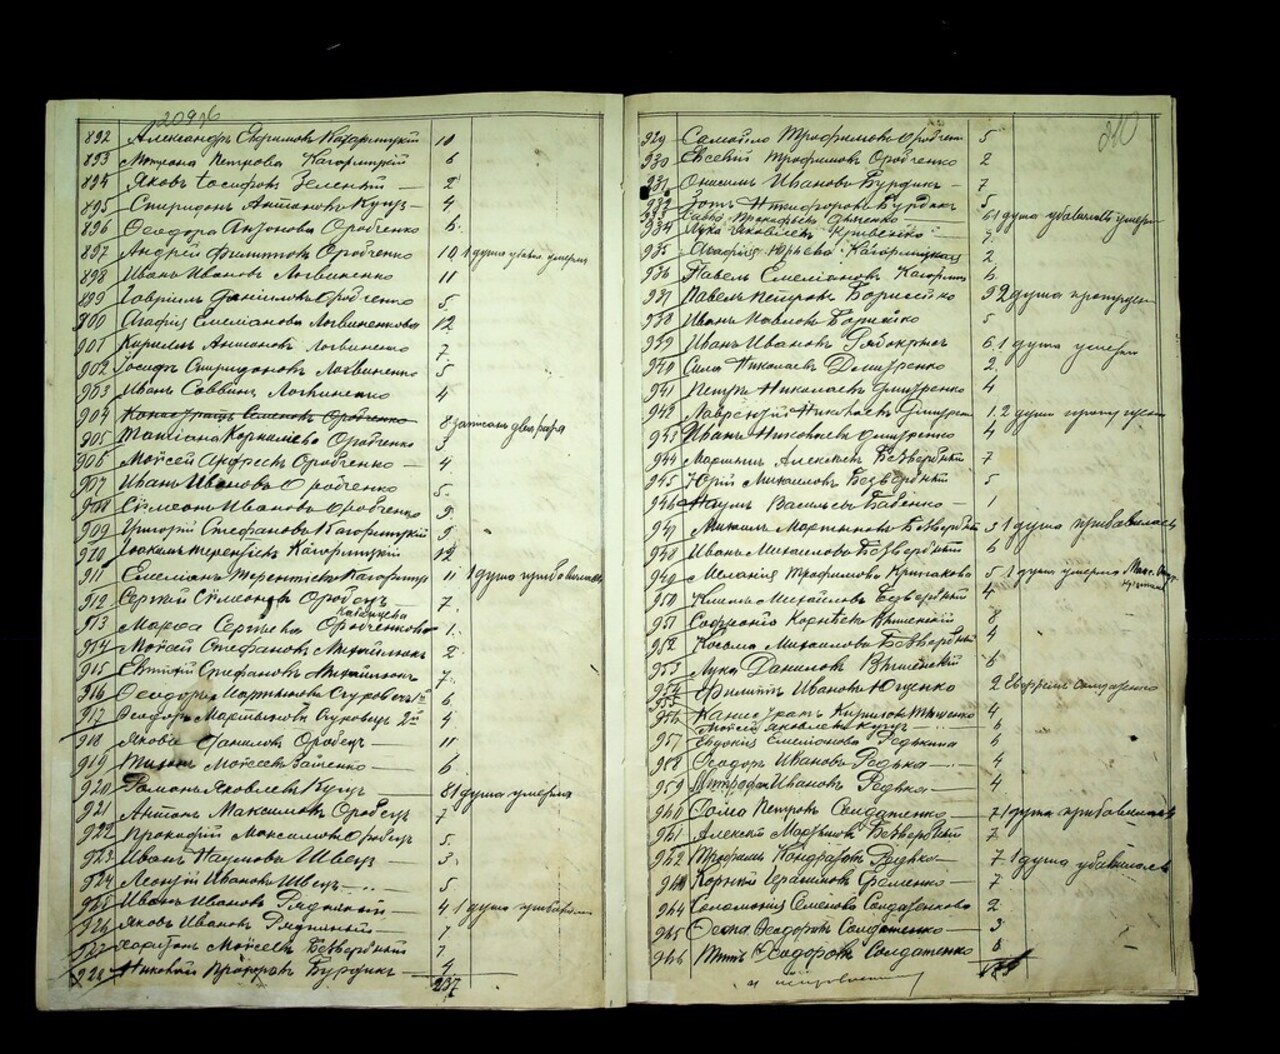 892 Александръ Ефримовъ Кагарлицкій 10
893 Матрона Петрова Кагорлицкій 6
894 Яковъ Іосифовъ Зеленый — 2
895 Спиридонъ Антоновъ Куцъ — 4
896 Ѳеодора Антонова Оробченко 6
897 Андрій Филиповъ Оробченко 10 1 душа убыла умерла
898 Иванъ Ивановъ Логвиненко 11
899 Гавріилъ Даніиловъ Оробченко 5
900 Агафія Емеліанова Логвиненкова 12
901 Кириллъ Антоновъ Логвиненко 7
902 Іосифъ Спиридоновъ Логвиненко 5
903 Иванъ Саввинъ Логвиненко 4
904 Семеновъ Оробченко 8 записанъ два раза
905 Татіана Корниліева Оробченко 3
906 Мойсей Андреевъ Оробченко — 4
907 Иванъ Ивановъ Оробченко 5
908 Сѵмеонъ Ивановъ Оробченко 9
909 Григорій Стефановъ Кагорлицкій 9
910 Іоакимъ Терентіевъ Кагорлицкій 12
911 Емеліанъ Терентіевъ Кагорлицк 11 1 душа прибавилась
912 Сергій Сѵмеоновъ Оробецъ 7
913 Марѳа Сергіева Оробченкова 1
914 Мойсей Стефановъ Михайлюкъ 2
915 Евтихій Стефановъ Михайлюкъ 7
916 Ѳеодоръ Мартыновъ Стуковецъ 1й 6
917 Ѳеодоръ Мартыновъ Стуковецъ 2й 4
918 Яковъ Даниловъ Оробецъ — 11
919 Мойсеевъ 6
920 Романъ Яковлевъ Куцъ — 8 1 душа умерла
921 Антонъ Максимовъ Оробецъ 7
922 Прокофій Максимовъ Оробецъ 5
923 Иванъ Наумовъ Швецъ — 3
924 Леонтій Ивановъ Швецъ — 5
925 Иванъ Ивановъ — 4 1 душа прибавил
926 Яковъ Ивановъ — 7
927 Харитонъ Мойсеевъ Безвербный 7
928 Бурдикъ — 4
237
929 Самойло Трофимовъ Оробченко 5
930 Евсевій Трофимовъ Оробченко 2
931 Онисимъ Ивановъ Бурдикъ — 7
932 Зотъ Никифоровъ Бурдикъ 5
933 Савва Прокофьевъ — 6 1 душа убавилась умерла
934 Лука Яковлевъ Кривенко 7
935 Агафія Юрьева Кагорлицкая 2
936 Павелъ Емеліановъ Кагорлиц 6
937 Павелъ Петровъ Борисейко 9 2 душа пропущен
938 Иванъ Павловъ Борисейко 5
939 Иванъ Ивановъ Рябокрысъ 6 1 душа умерла
940 Сила Николаевъ Дмитренко 2
941 Петръ Николаевъ Дмитренко 4
942 Лаврентій Николаевъ Дмитрен 1. 2 души пропущен
943 Иванъ Николаевъ Дмитренко 4
944 Мартынъ Алексѣевъ Безвербный 7
945 Юрій Михаиловъ Безвербный 5
946 Наумъ Васильевъ Бабенко — 1
947 Михаилъ Мартыновъ Безвербный 3 1 душа прибавилась
948 Иванъ Михаиловъ Безвербный 6
949 Меланія Трофимова 5 1 душа умерла
950 Михайловъ Безвербный 4
951 Софронія Вышенскій 8
952 Косьма Михаиловъ Безвербный 4
953 Лука Даниловъ Вышенскій 6
954 Филиппъ Ивановъ Ющенко 2
955
956 Каниcтратъ Кириловъ 4
Мойсей Яковлевъ Куцъ — 6
957 Евдокія Емеліанова Редькина 6
958 Ѳеодоръ Ивановъ Редька — 4
959 Митрофанъ Ивановъ Редька — 4
960 Ѳома Петровъ Солдатенко — 7 1 душа прибавилась
961 Алексій Мартыновъ Безвербный 7
962 Трофимъ Кондратовъ Редька — 7 1 душа убавилась
963 Корній Герасимовъ — 7
964 Соломонія Семенова Солдатенкова 2
965 Ѳеодоровъ Солдатенко — 3
966 Титъ Ѳеодоровъ Солдатенко 6